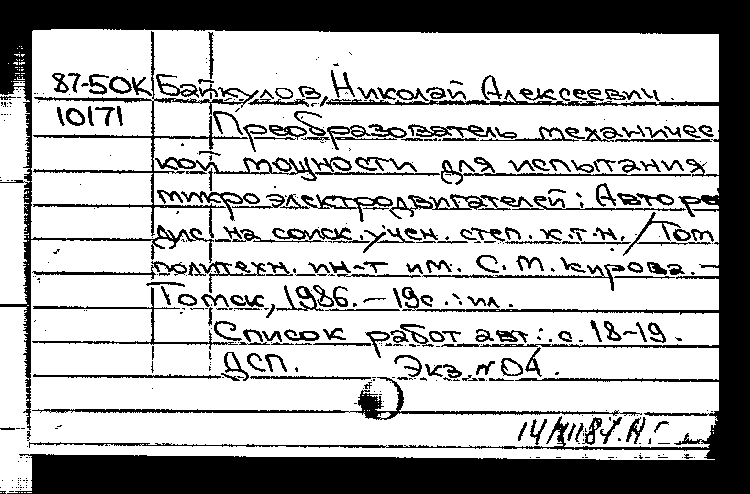 87-50К Байкулов, Николай Алексеевич.
10171 Преобразователь механичес-
кой мощности для испытания
микроэлектродвигателей: Авторе
дис. на соиск. учен. степ. к.т.н. / Том.
политехн. ин-т им. С.М. Кирова. –
Томск, 1986. – 19с.: ил.
Список работ авт.: с. 18-19.
ДСП. Экз. №04.